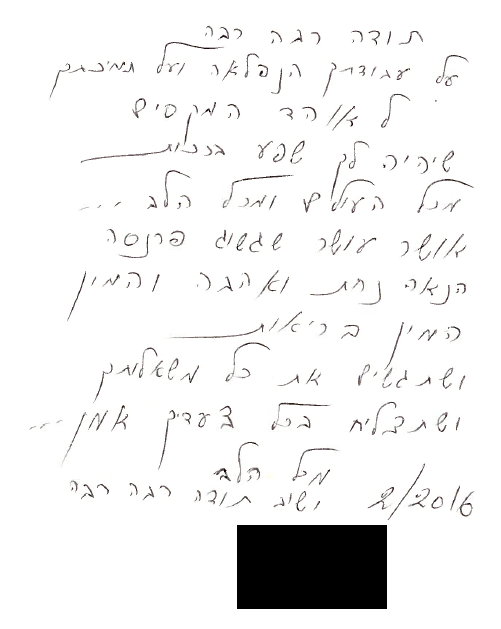 תודה רבה רבה
על עבודתך הנפלאה ועל תמיכתך
ל אוהד המקסים
שיהיה לך שפע ברכות
מכל העולם ומכל הלב ...
אושר עושר שגשוג פרנסה
הנאה נחת ואהבה והמון
המון בריאות
ושתגשים את כל משאלותך
ושתצליח בכל צעדיך אמן ...
מכל הלב
2/2016 ושוב תודה רבה רבה